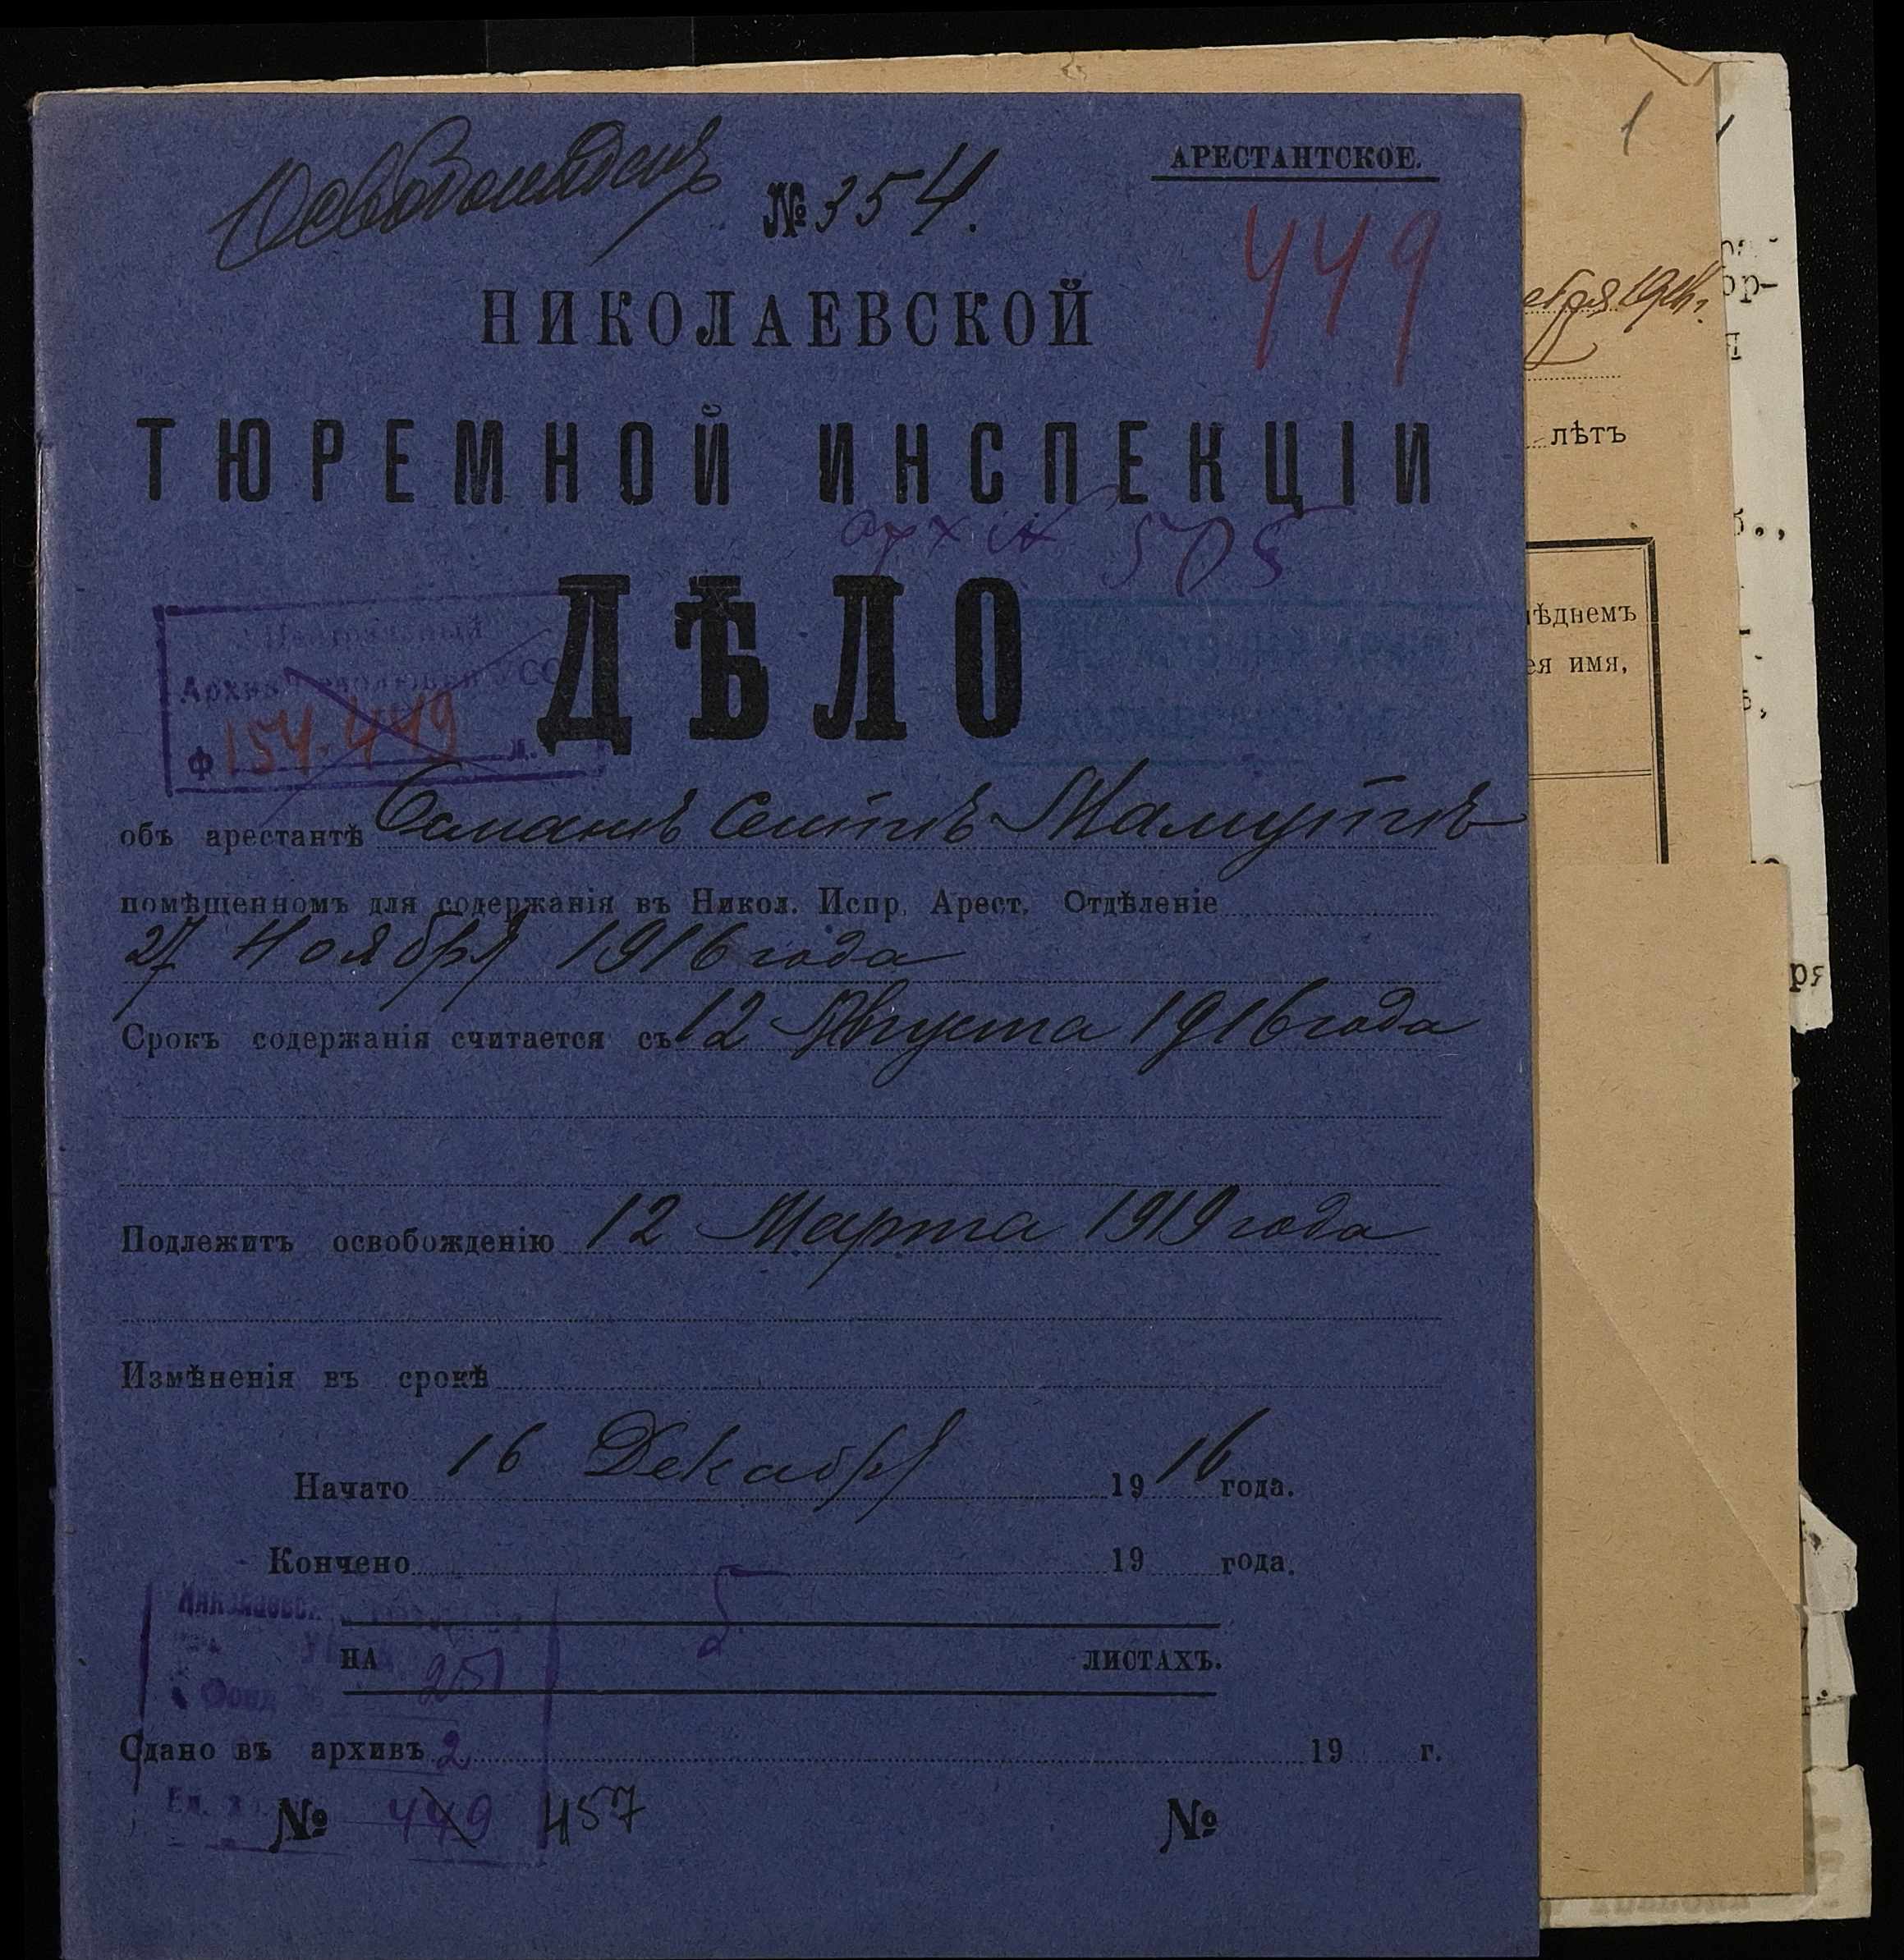 № 354.
АРЕСТАНТСКОЕ.
449
НИКОЛАЕВСКОЙ
ТЮРЕМНОЙ ИНСПЕКЦІИ
архів 505
ДѢЛО
Ф 154. 449
объ арестантѣ Османъ Сеитъ Мамутъ
помѣщенномъ для содержанія въ Никол. Испр. Арест. Отдѣленіе
27 Ноября 1916 года
Срокъ содержанія считается съ 12 Августа 1916 года
Подлежитъ освобожденію 12 Марта 1919 года
Измѣненія въ срокѣ
Начато 16 Декабря 1916 года.
Кончено 19 года.
5
НА ЛИСТАХЪ.
Фонд 251
Сдано въ архивъ 2 19 г.
№ 449 457 №
1
лѣтъ
ея имя,